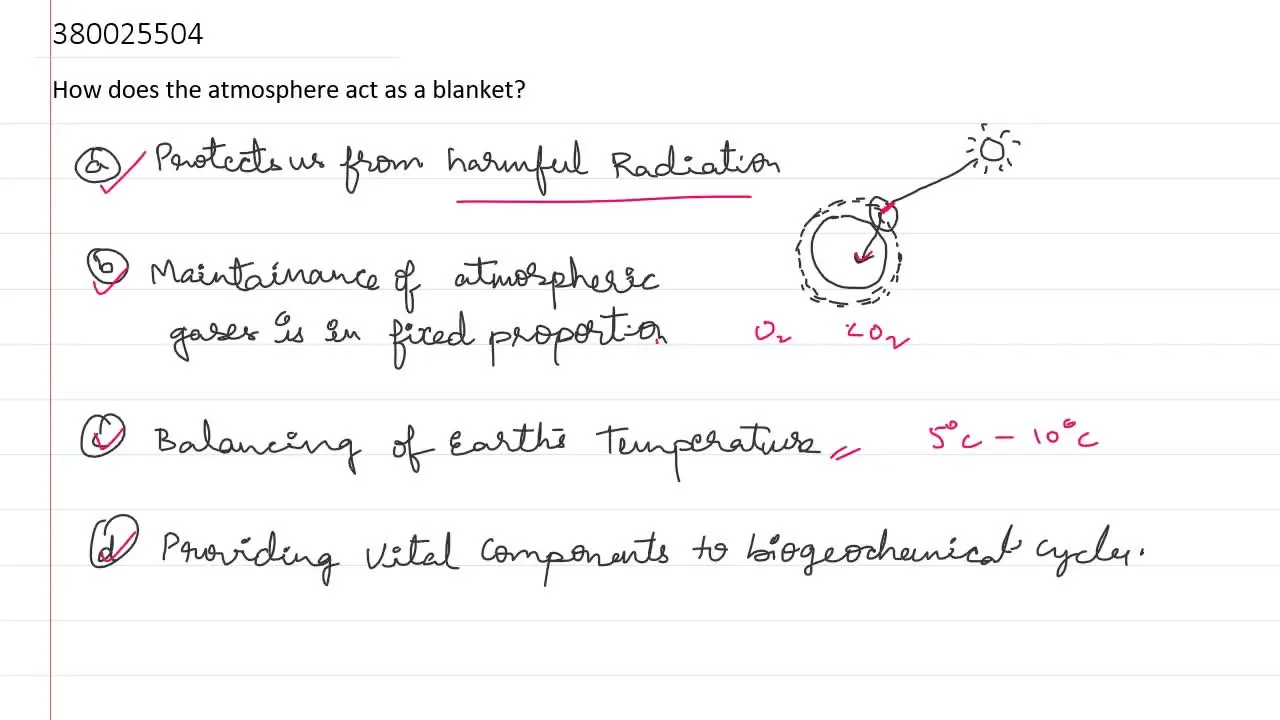 380025504
How does the atmosphere act as a blanket?
a Protects us from harmful Radiation
b Maintainance of atmospheric
gases is in fixed proportion O₂ CO₂
c Balancing of Earth's Temperature 5°C - 10°C
d Providing vital components to biogeochemical cycle.